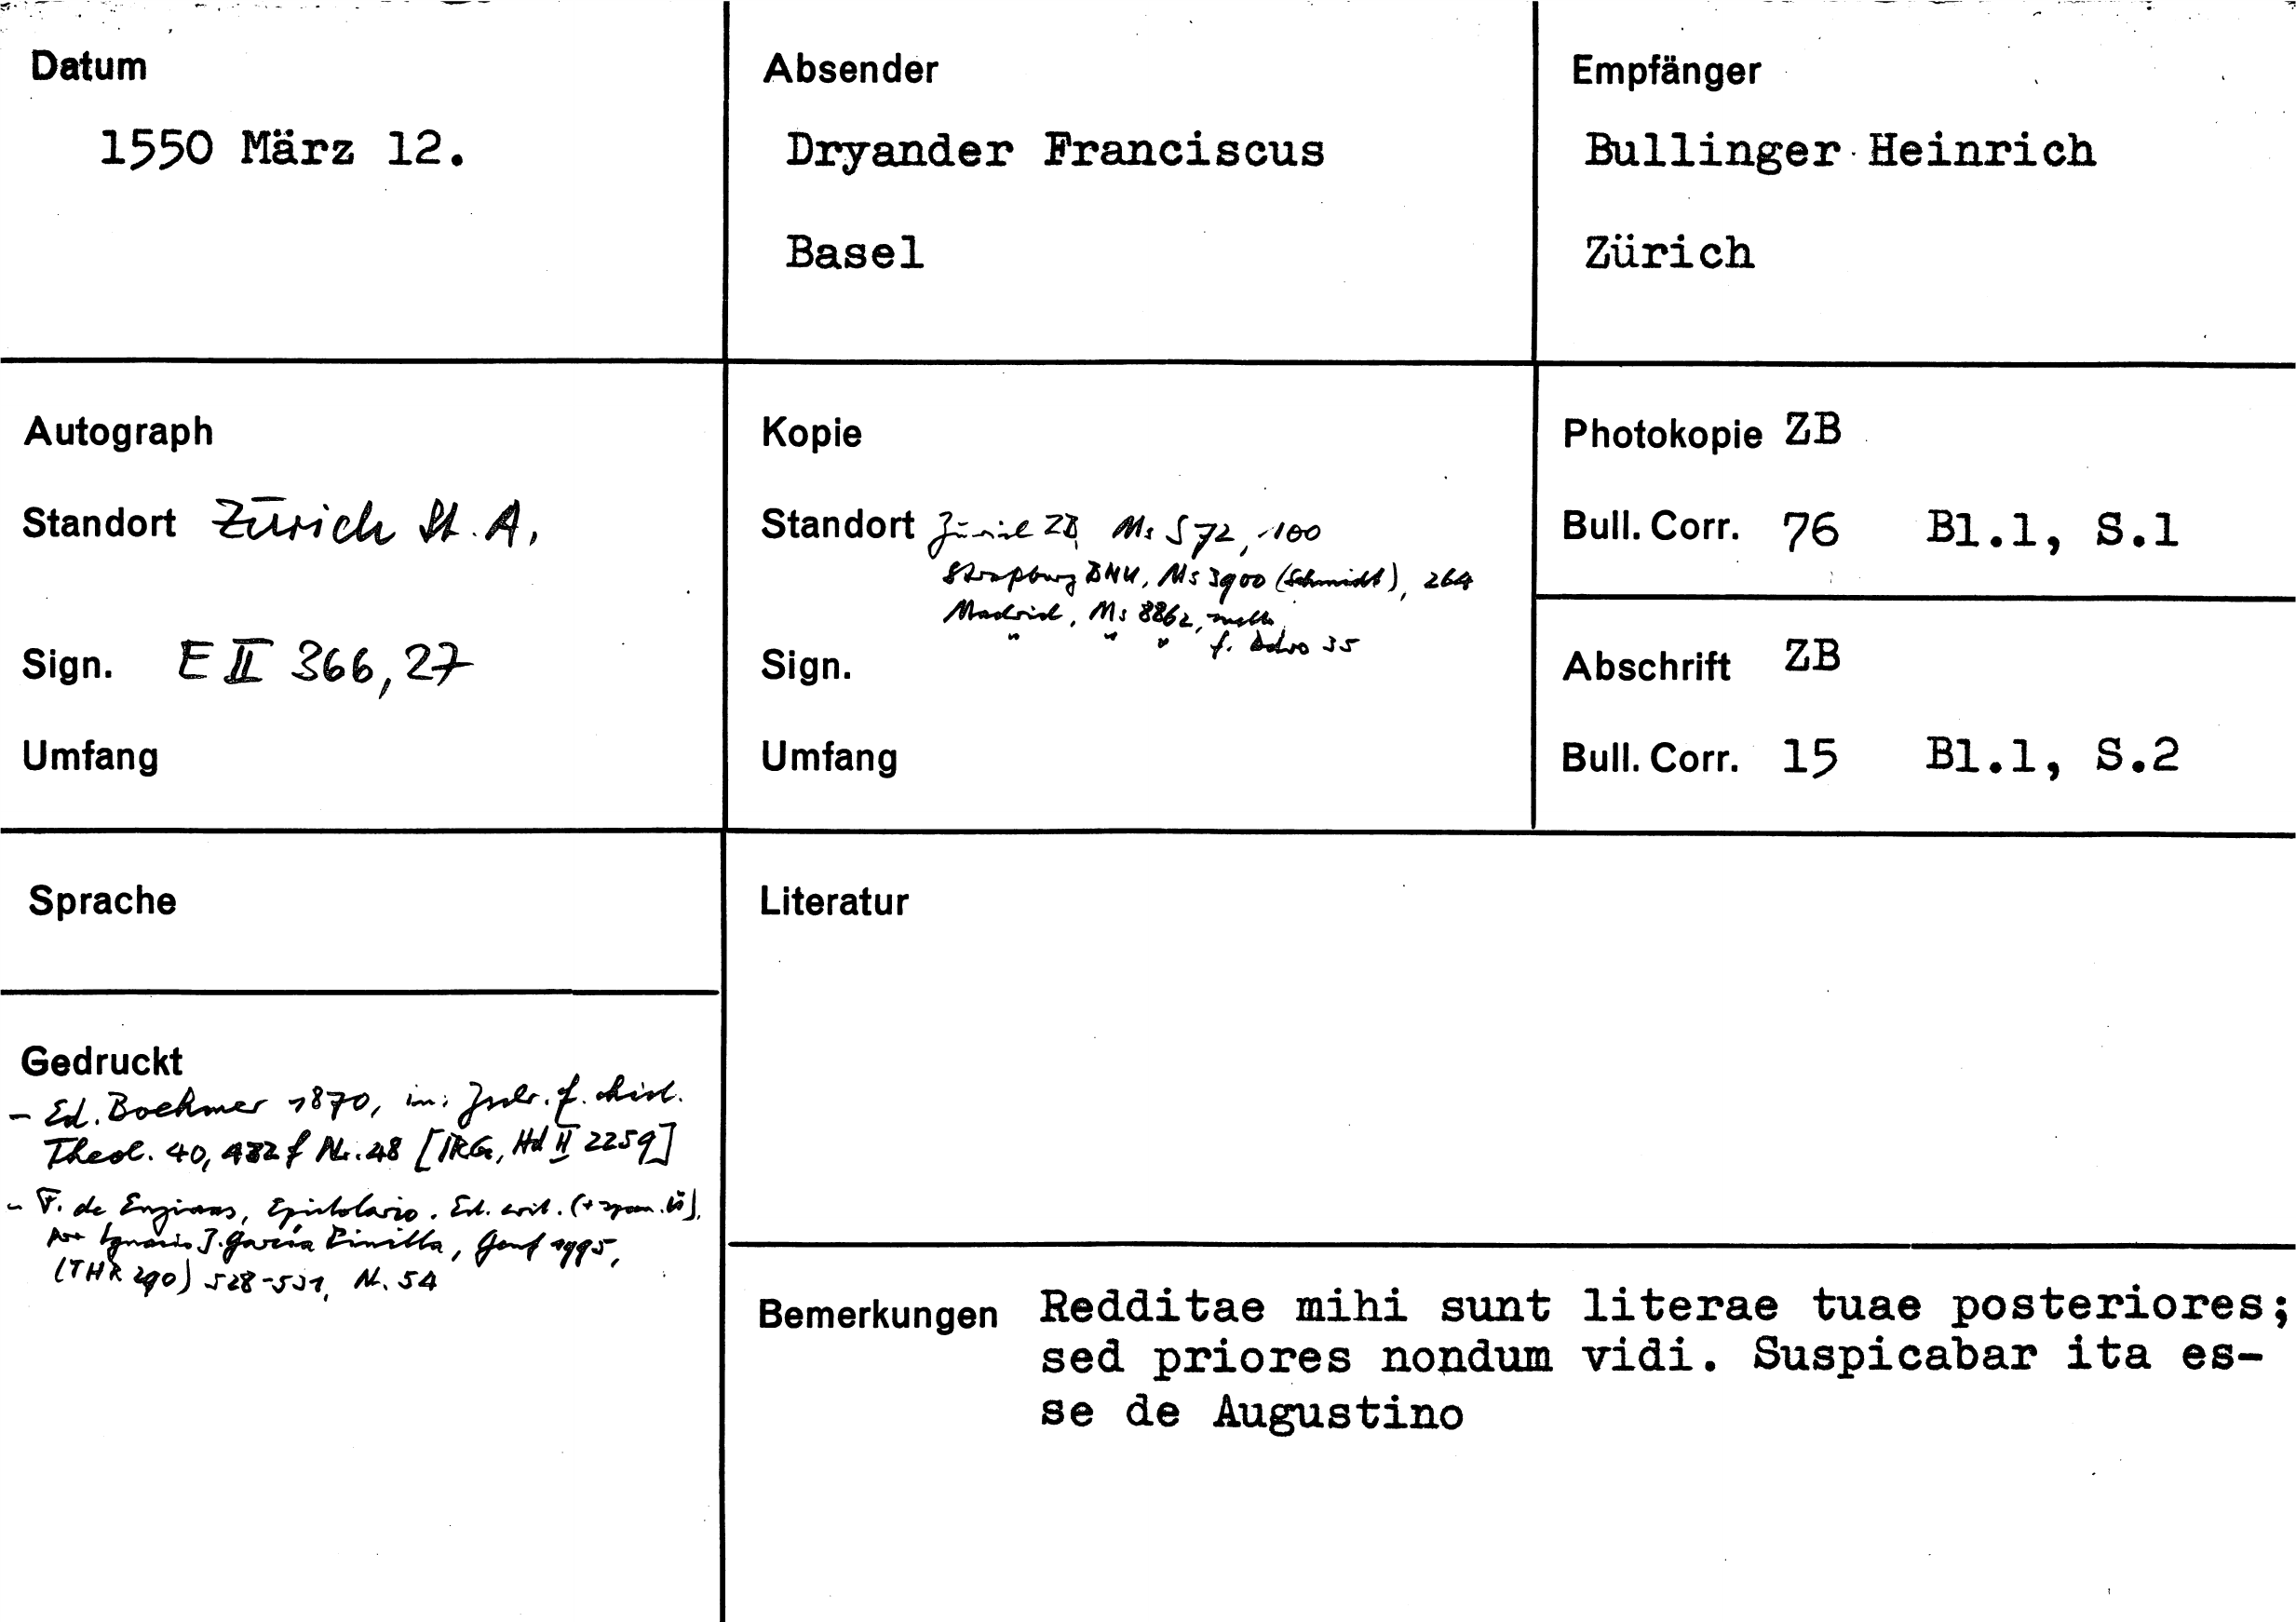 Datum
1550 März 12.
Absender
Dryander Franciscus
Basel
Empfänger
Bullinger Heinrich
Zürich
Autograph
Standort Zürich St. A.
Sign. E II 366, 27
Umfang
Kopie
Standort Zürich ZB, Ms S 72, 100
Strassburg BNU, Ms 3900 (Schmidt), 264
Madrid, Ms 8862,
" " " f. 35
Sign.
Umfang
Photokopie ZB
Bull. Corr. 76 Bl.1, S.1
Abschrift ZB
Bull. Corr. 15 Bl.1, S.2
Sprache
Gedruckt
- Ed. Boehmer 1870, in: f. hist.
Theol. 40, 432 f Nr. 48 [IRG, Hd II 2259]
- F. de Enzinas, Epistolario. Ed. crit. (+ span. Üs),
Ignacio J. García Pinilla, Genf 1995,
(THR 290) 528-531, Nr. 54
Literatur
Bemerkungen Redditae mihi sunt literae tuae posteriores;
sed priores nondum vidi. Suspicabar ita es-
se de Augustino